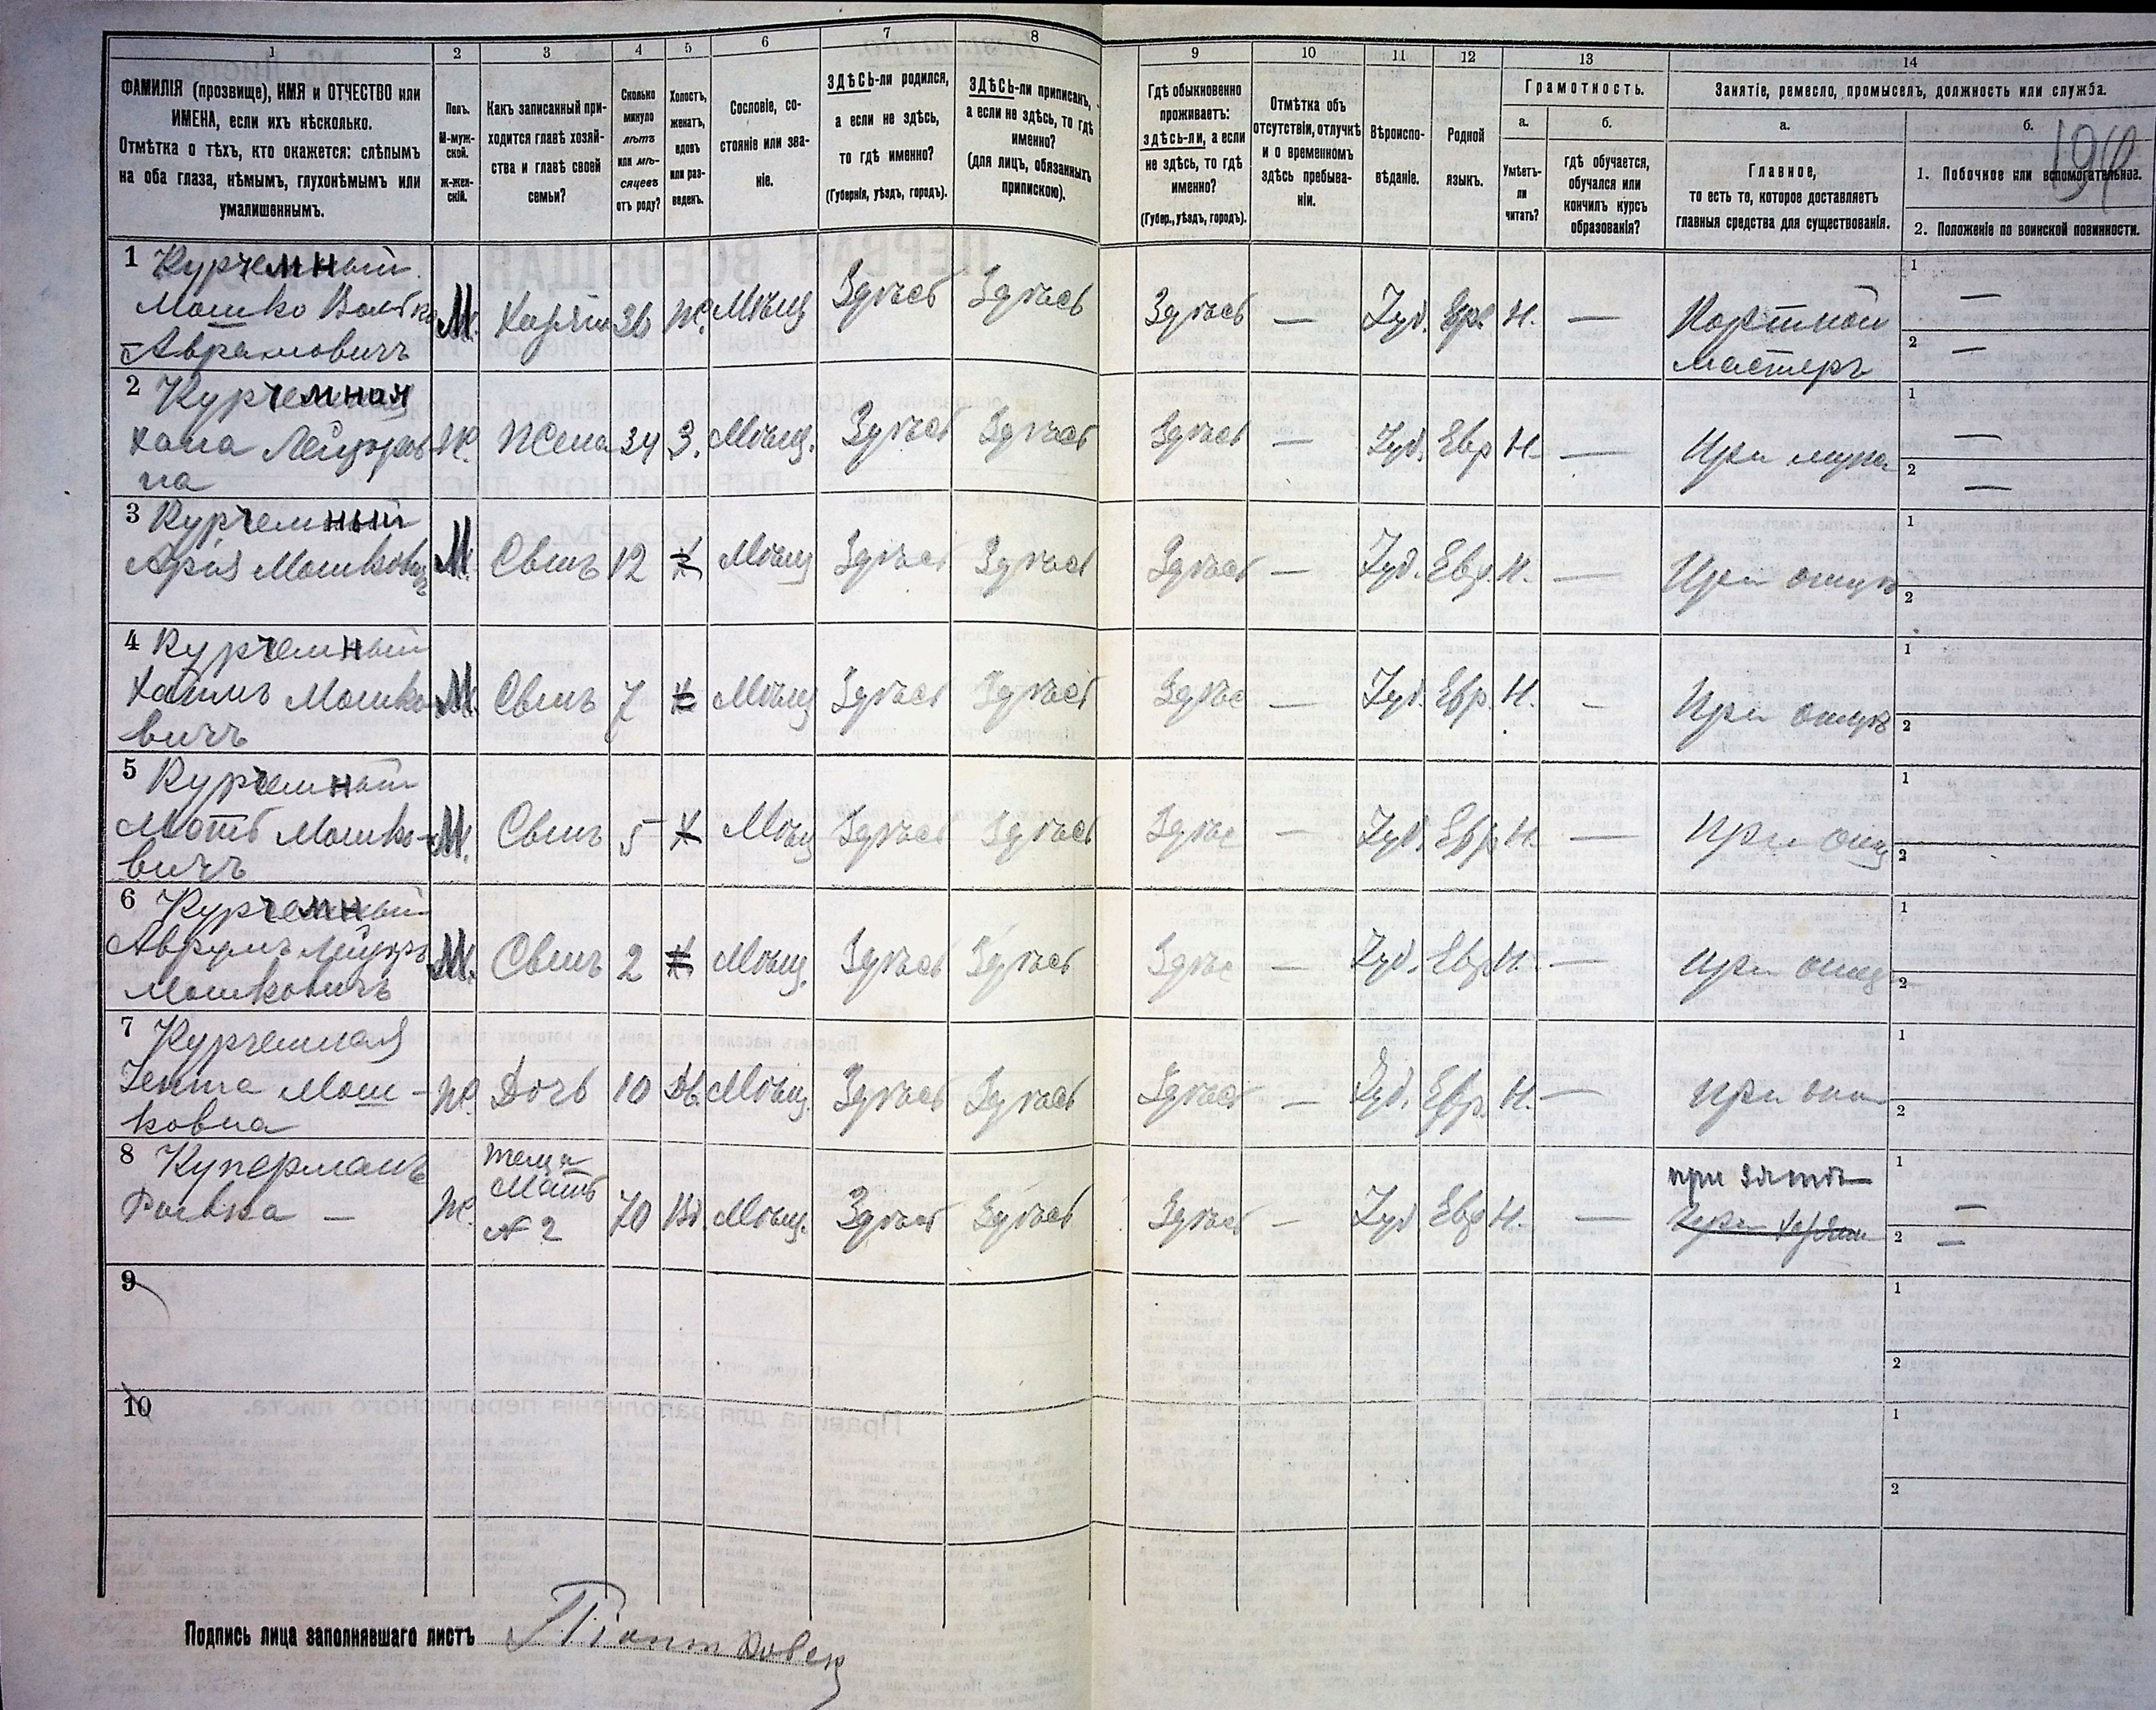 1 2 3 4 5 6 7 8 9 10 11 12 13 14
ФАМИЛІЯ (прозвище), ИМЯ и ОТЧЕСТВО или
ИМЕНА, если ихъ нѣсколько.
Отмѣтка о тѣхъ, кто окажется: слѣпымъ
на оба глаза, нѣмымъ, глухонѣмымъ или
умалишеннымъ.
Полъ.
М-муж-
ской.
Ж-жен-
скій.
Какъ записанный при-
ходится главѣ хозяй-
ства и главѣ своей
семьи?
Сколько
минуло
лѣтъ
или мѣ-
сяцевъ
отъ роду?
Холостъ,
женатъ,
вдовъ
или раз-
веденъ.
Сословіе, со-
стояніе или зва-
ніе.
ЗДѢСЬ-ли родился,
а если не здѣсь,
то гдѣ именно?
(Губернія, уѣздъ, городъ).
ЗДѢСЬ-ли приписанъ,
а если не здѣсь, то гдѣ
именно?
(для лицъ, обязанныхъ
припискою).
Гдѣ обыкновенно
проживаетъ:
здѣсь-ли, а если
не здѣсь, то гдѣ
именно?
(Губер., уѣздъ, городъ).
Отмѣтка объ
отсутствіи, отлучкѣ
и о временномъ
здѣсь пребыва-
ніи.
Вѣроиспо-
вѣданіе.
Родной
языкъ.
Грамотность.
а.
Умѣетъ-
ли
читать?
б.
гдѣ обучается,
обучался или
кончилъ курсъ
образованія?
Занятіе, ремесло, промыселъ, должность или служба.
а.
Главное,
то есть то, которое доставляетъ
главныя средства для существованія.
б.
1. Побочное или вспомогательное.
2. Положеніе по воинской повинности.
1 Курчемный
Мошко Волько
Аврамовичъ
М. Хозяин 36 Ж. Мѣщ Здѣсь Здѣсь Здѣсь — Іуд. Евр. Н. — Портной
мастеръ
1 —
2 —
2 Курчемная
Хана Лейзоров
на
Ж. Жена 34 З. Мѣщ. Здѣсь Здѣсь Здѣсь — Іуд. Евр Н. — При мужѣ
1 —
2 —
3 Курчемный
Арія Мошковичъ
М. Сынъ 12 Х Мѣщ Здѣсь Здѣсь Здѣсь — Іуд. Евр. Н. — При отцѣ
1
2
4 Курчемный
Хаимъ Мошко
вичъ
М. Сынъ 7 Х Мѣщ Здѣсь Здѣсь Здѣс — Іуд. Евр. Н. — При отцѣ
1
2
5 Курчемный
Мотъ Мошко-
вичъ
М. Сынъ 5 Х Мѣщ Здѣсь Здѣсь Здѣс — Іуд. Евр. Н. — При отц
1
2
6 Курчемный
Аврумъ
Мошковичъ
М. Сынъ 2 Х Мѣщ. Здѣсь Здѣсь Здѣс — Іуд. Евр Н. — При отц
1
2
7 Курчемная
Гента Мош-
ковна
Ж. Дочь 10 Дѣ. Мѣщ. Здѣсь Здѣсь Здѣсь — Іуд. Евр. Н. — При отц
1
2
8 Куперманъ
Ривка —
Ж. теща
Мать
№ 2
70 Вд. Мѣщ. Здѣсь Здѣсь Здѣсь — Іуд Евр Н. — при зятѣ
1 —
2 —
9
1
2
10
1
2
Подпись лица заполнявшаго листъ